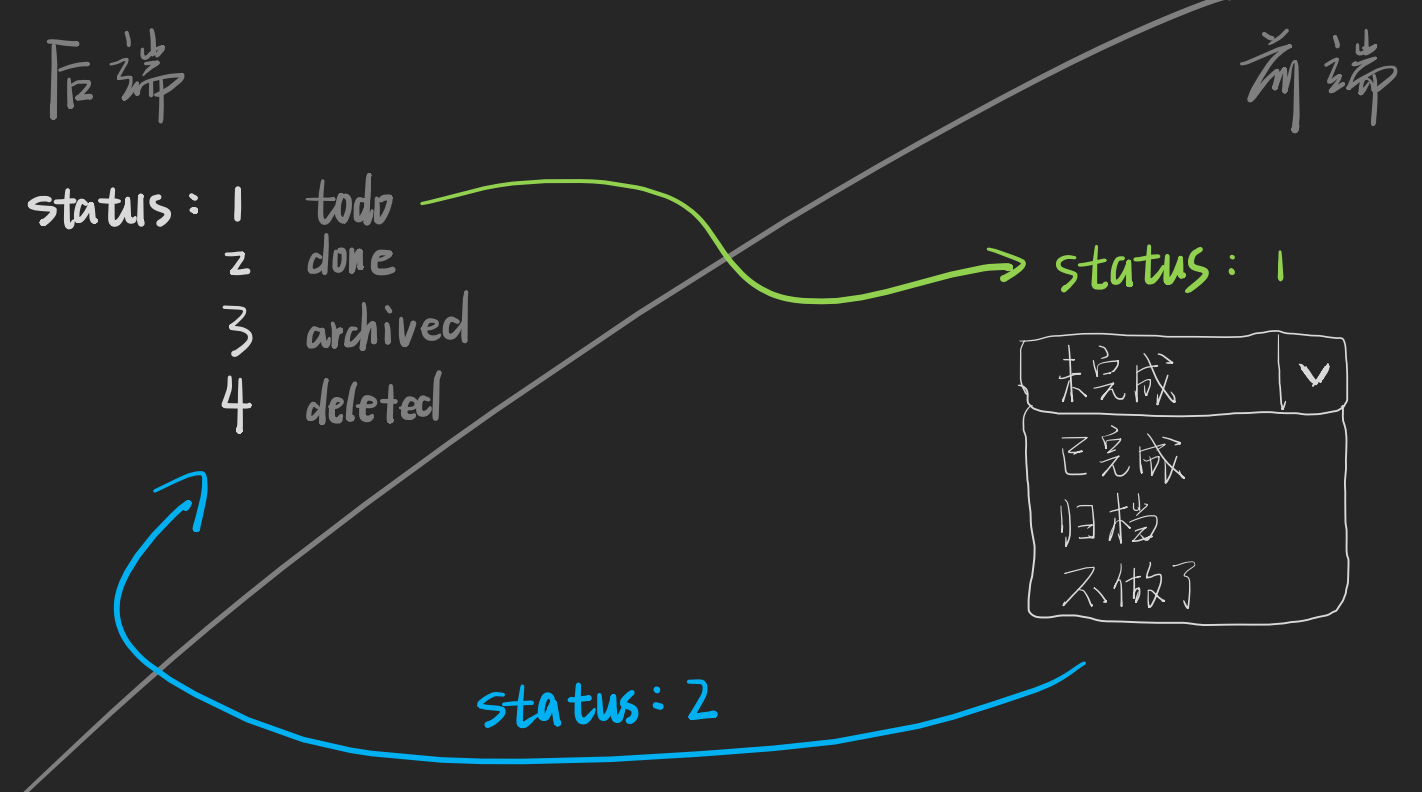 后端
前端
status: 1 todo
2 done
3 archived
4 deleted
status: 1
未完成
已完成
归档
不做了
status: 2